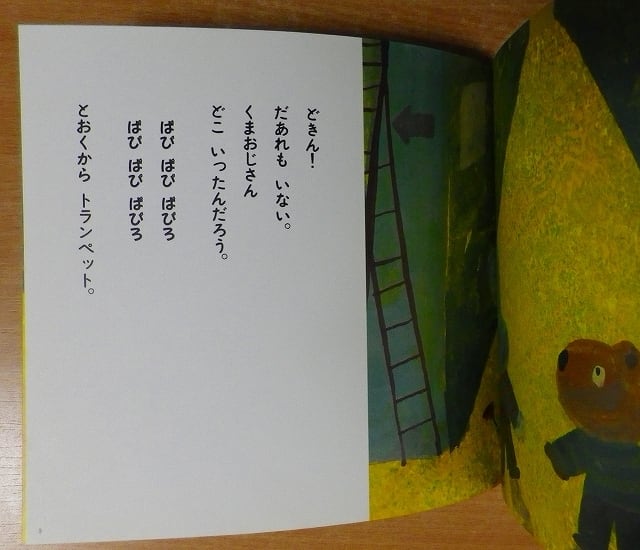 どきん！
だあれも いない。
くまおじさん
どこ いったんだろう。
ぱぴ ぱぴ ぱぴろ
ぱぴ ぱぴ ぱぴろ
とおくから トランペット。